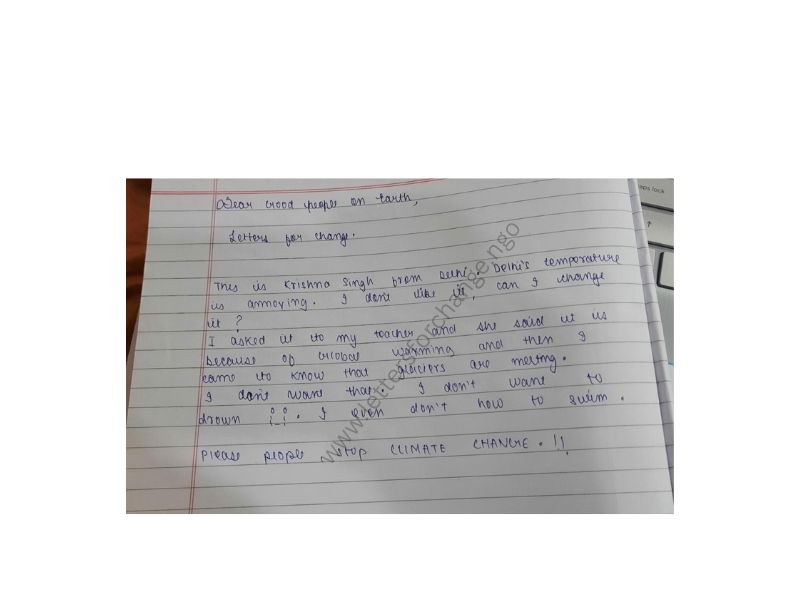 Dear Good people on Earth,
Letters for change.
This is Krishna Singh from Delhi. Delhi's temperature
is annoying. I dont like it, can I change
it ?
I asked it to my teacher and she said it is
because of Global warming and then I
came to know that glaciers are melting.
I dont want that. I don't want to
drown. I even don't how to swim.
Please people stop CLIMATE CHANGE. !!
www.lettersforchange.ngo
caps lock